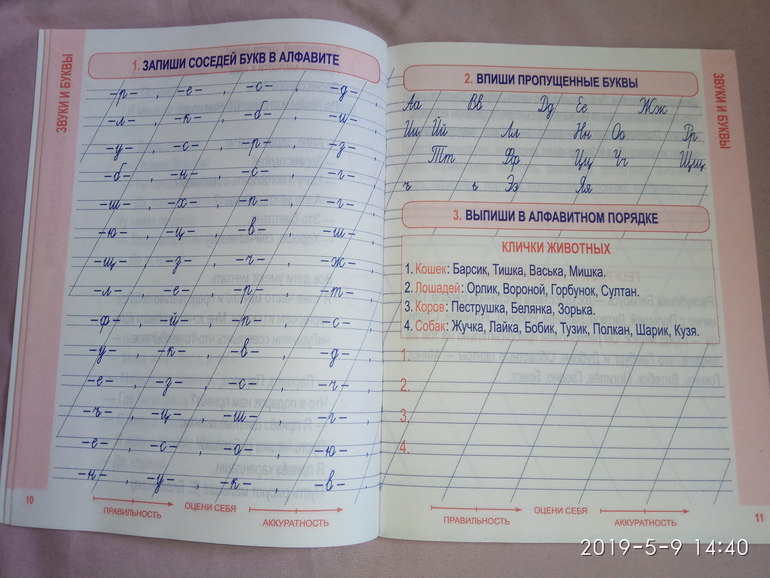 ЗВУКИ И БУКВЫ
1. ЗАПИШИ СОСЕДЕЙ БУКВ В АЛФАВИТЕ
-р- , -е- , -с- , -д- .
-л- , -к- , -б- , -и- .
-у- , -с- , -р- , -з- .
-б- , -н- , -с- , -г- .
-ш- , -х- , -п- , -г- .
-ю- , -ц- , -в- , -ш- .
-щ- , -з- , -ч- , -ж- .
-л- , -е- , -р- , -т- .
-ф- , -й- , -п- , -г- .
-у- , -к- , -в- , -д- .
-е- , -з- , -с- , -г- .
-ъ- , -ц- , -ш- , -г- .
-е- , -с- , -о- , -ю- .
-н- , -у- , -к- , -в- .
10
ПРАВИЛЬНОСТЬ ОЦЕНИ СЕБЯ АККУРАТНОСТЬ
2. ВПИШИ ПРОПУЩЕННЫЕ БУКВЫ
Аа Вв Дд Ее Жж
Ии Йй Лл Нн Оо Рр
Тт Фф Цц Чч Щщ
ъ ь Ээ Яя
3. ВЫПИШИ В АЛФАВИТНОМ ПОРЯДКЕ
КЛИЧКИ ЖИВОТНЫХ
1. Кошек: Барсик, Тишка, Васька, Мишка.
2. Лошадей: Орлик, Вороной, Горбунок, Султан.
3. Коров: Пеструшка, Белянка, Зорька.
4. Собак: Жучка, Лайка, Бобик, Тузик, Полкан, Шарик, Кузя.
1.
2.
3.
4.
ПРАВИЛЬНОСТЬ ОЦЕНИ СЕБЯ АККУРАТНОСТЬ
11
ЗВУКИ И БУКВЫ
2019-5-9 14:40